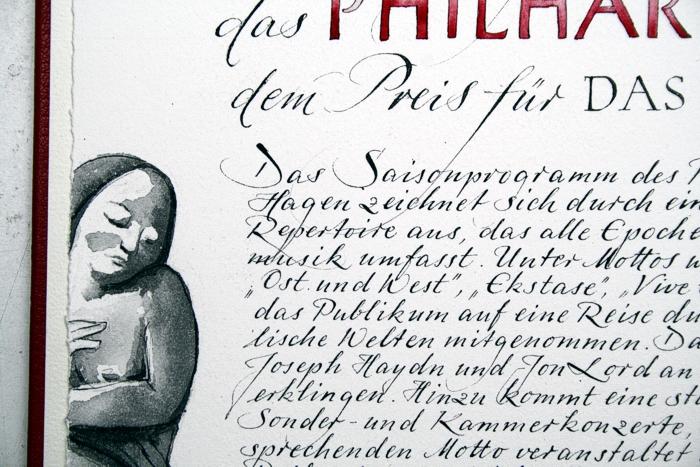 das PHILHAR
dem Preis für DAS
Das Saisonprogramm des
Hagen zeichnet sich durch ein
Repertoire aus, das alle Epoche
musik umfasst. Unter Mottos w
„Ost und West“, „Ekstase“, „Vive
das Publikum auf eine Reise du
lische Welten mitgenommen. Da
Joseph Haydn und Jon Lord an
erklingen. Hinzu kommt eine st
Sonder- und Kammerkonzerte,
sprechenden Motto veranstaltet